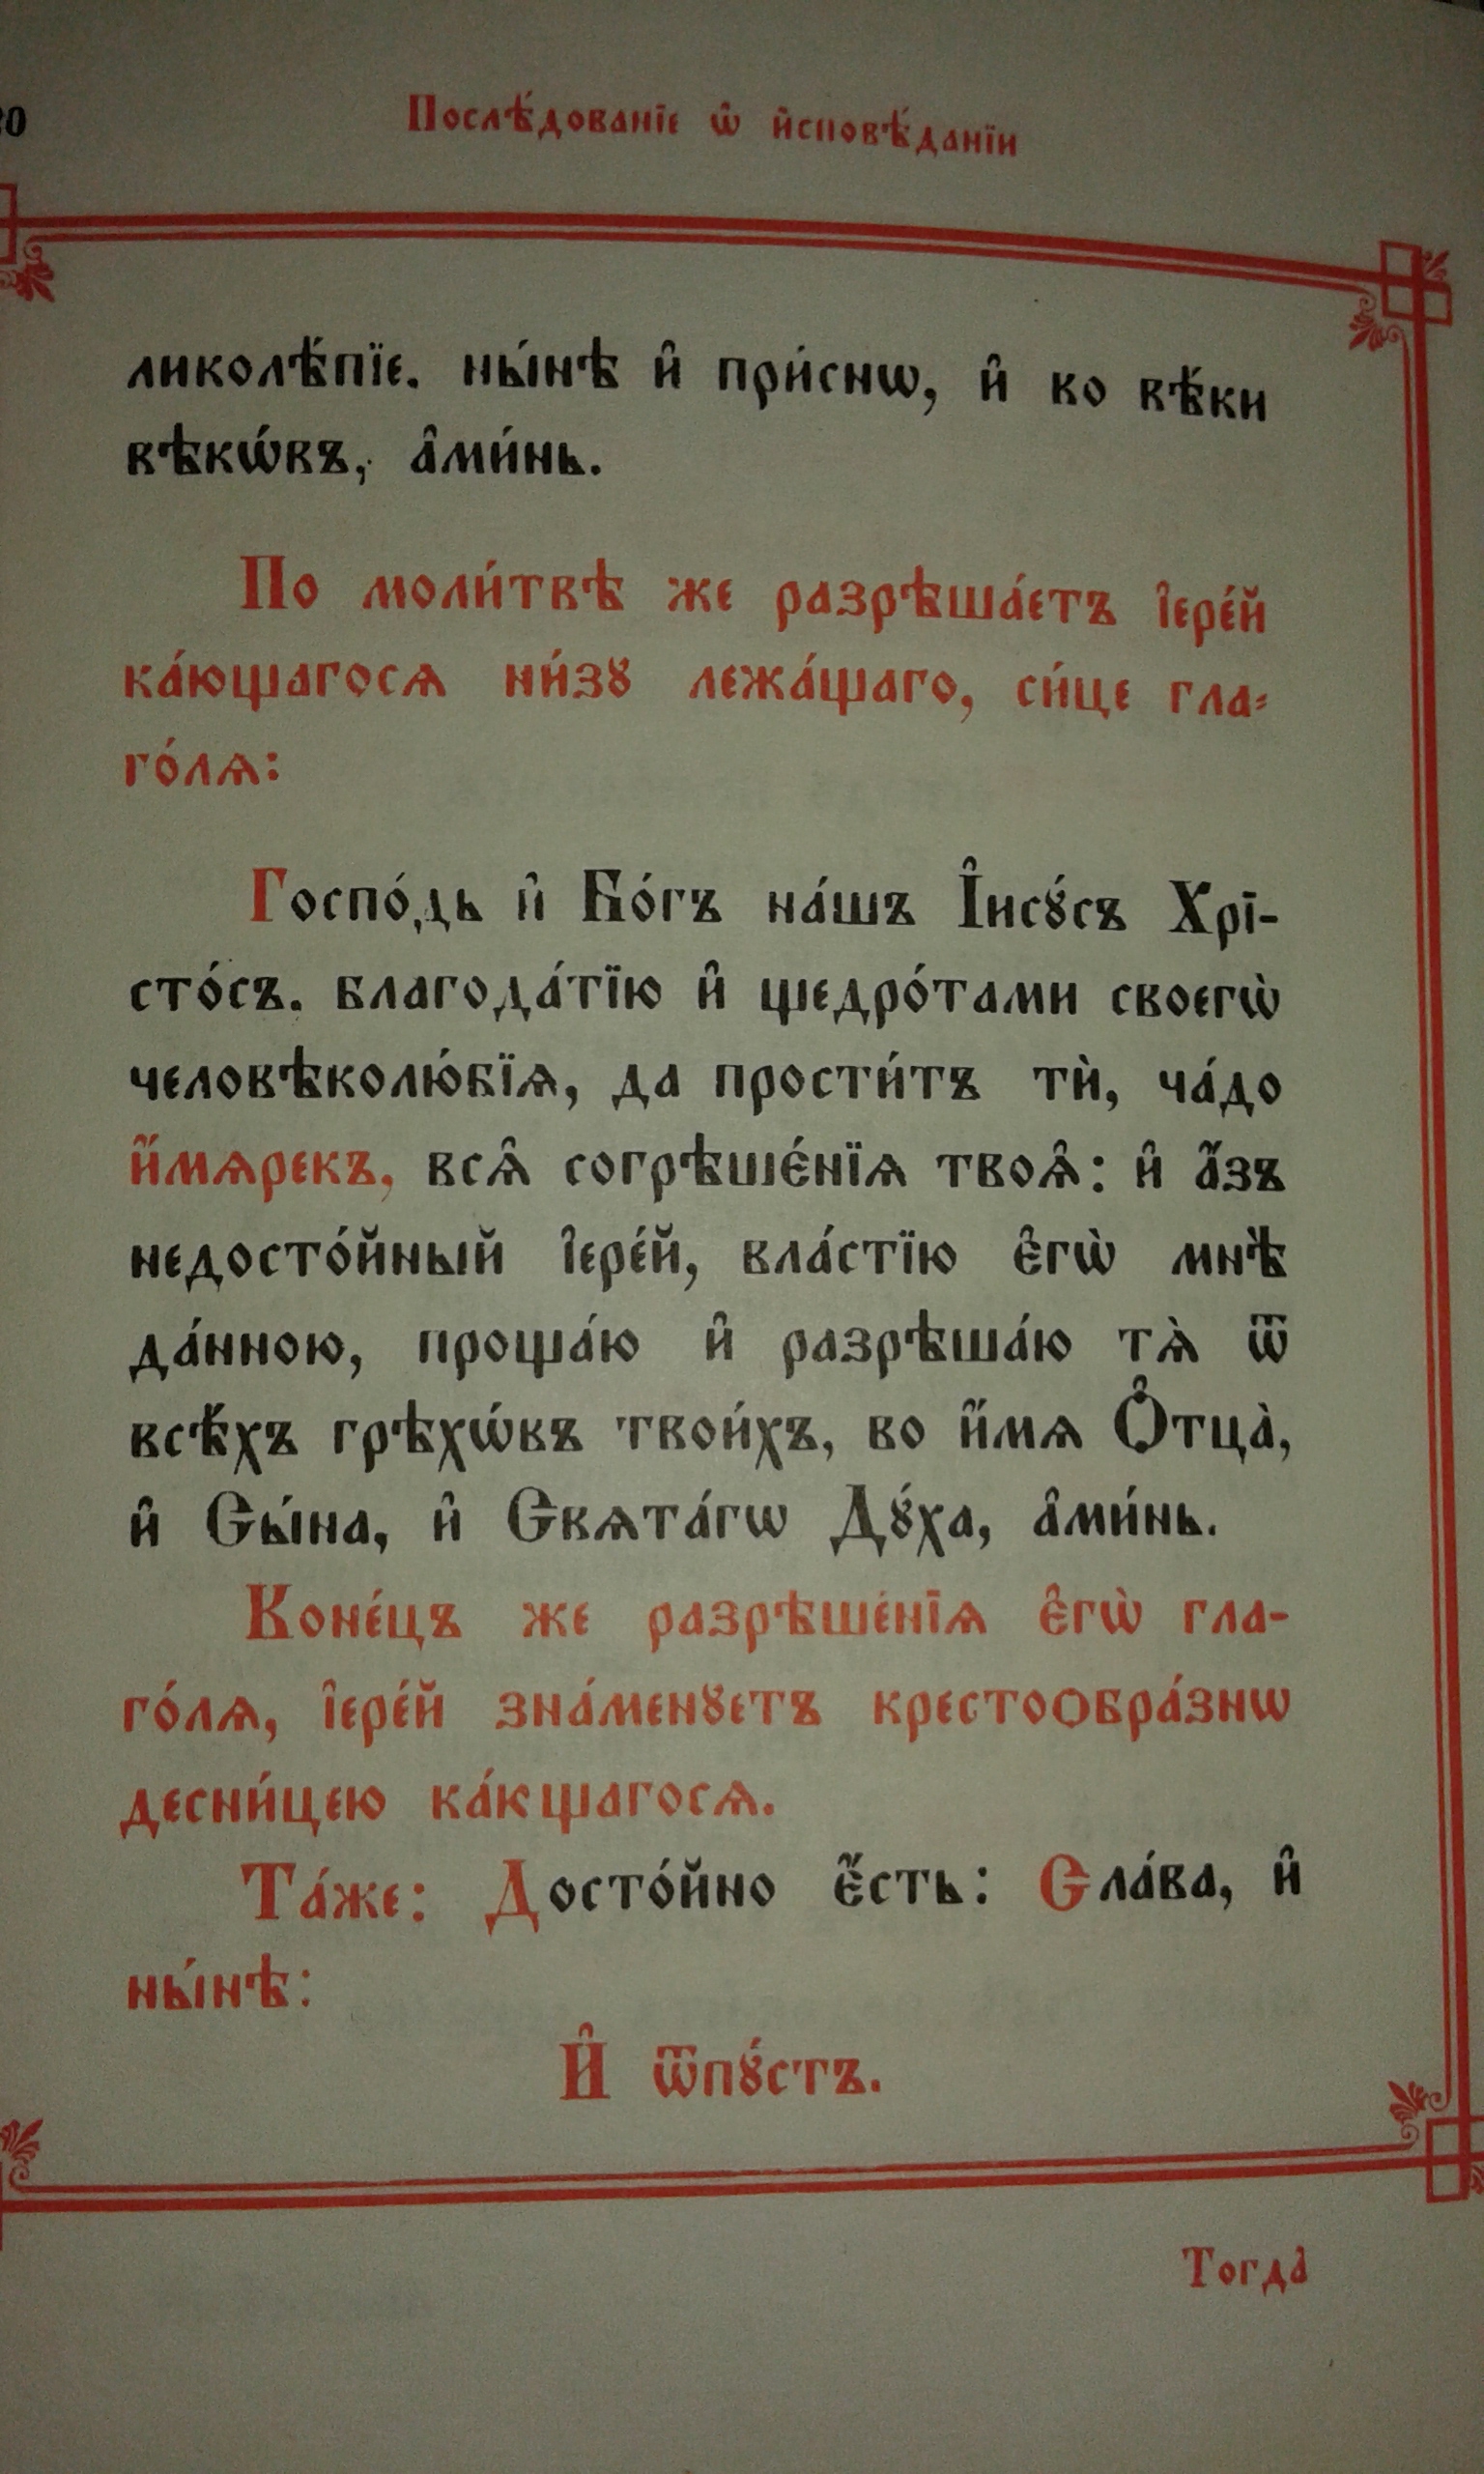 Послѣ́дованїе ѡ҆ и҆сповѣ́данїи
ликолѣ́пїе. ны́нѣ и҆ при́снѡ, и҆ во вѣ́ки
вѣкѡ́въ, а҆ми́нь.
По моли́твѣ же разрѣша́етъ і҆ере́й
ка́ющагосѧ ни́зꙋ лежа́щаго, си́це гла-
го́лѧ:
Госпо́дь и҆ Бо́гъ на́шъ І҆исꙋ́съ Хрї-
сто́съ. благода́тїю и҆ щедро́тами своегѡ̀
человѣколю́бїѧ, да прости́тъ тѝ, ча́до
и҆́мѧрекъ, всѧ҄ согрѣше́нїѧ твоѧ҄: и҆ а҆́зъ
недосто́йный і҆ере́й, вла́стїю є҆гѡ̀ мнѣ̀
да́нною, проща́ю и҆ разрѣша́ю тѧ̀ ѿ
всѣ́хъ грѣхѡ́въ твои́хъ, во и҆́мѧ Ѻ҆тца̀,
и҆ Сы́на, и҆ Свѧта́гѡ Дꙋ́ха, а҆ми́нь.
Коне́цъ же разрѣше́нїѧ є҆гѡ̀ гла-
го́лѧ, і҆ере́й зна́менꙋетъ крестоѻбра́знѡ
десни́цею ка́ющагосѧ.
Та́же: Досто́йно є҆́сть: Сла́ва, и҆
ны́нѣ:
И҆ ѿпꙋ́стъ.
Тогда̀